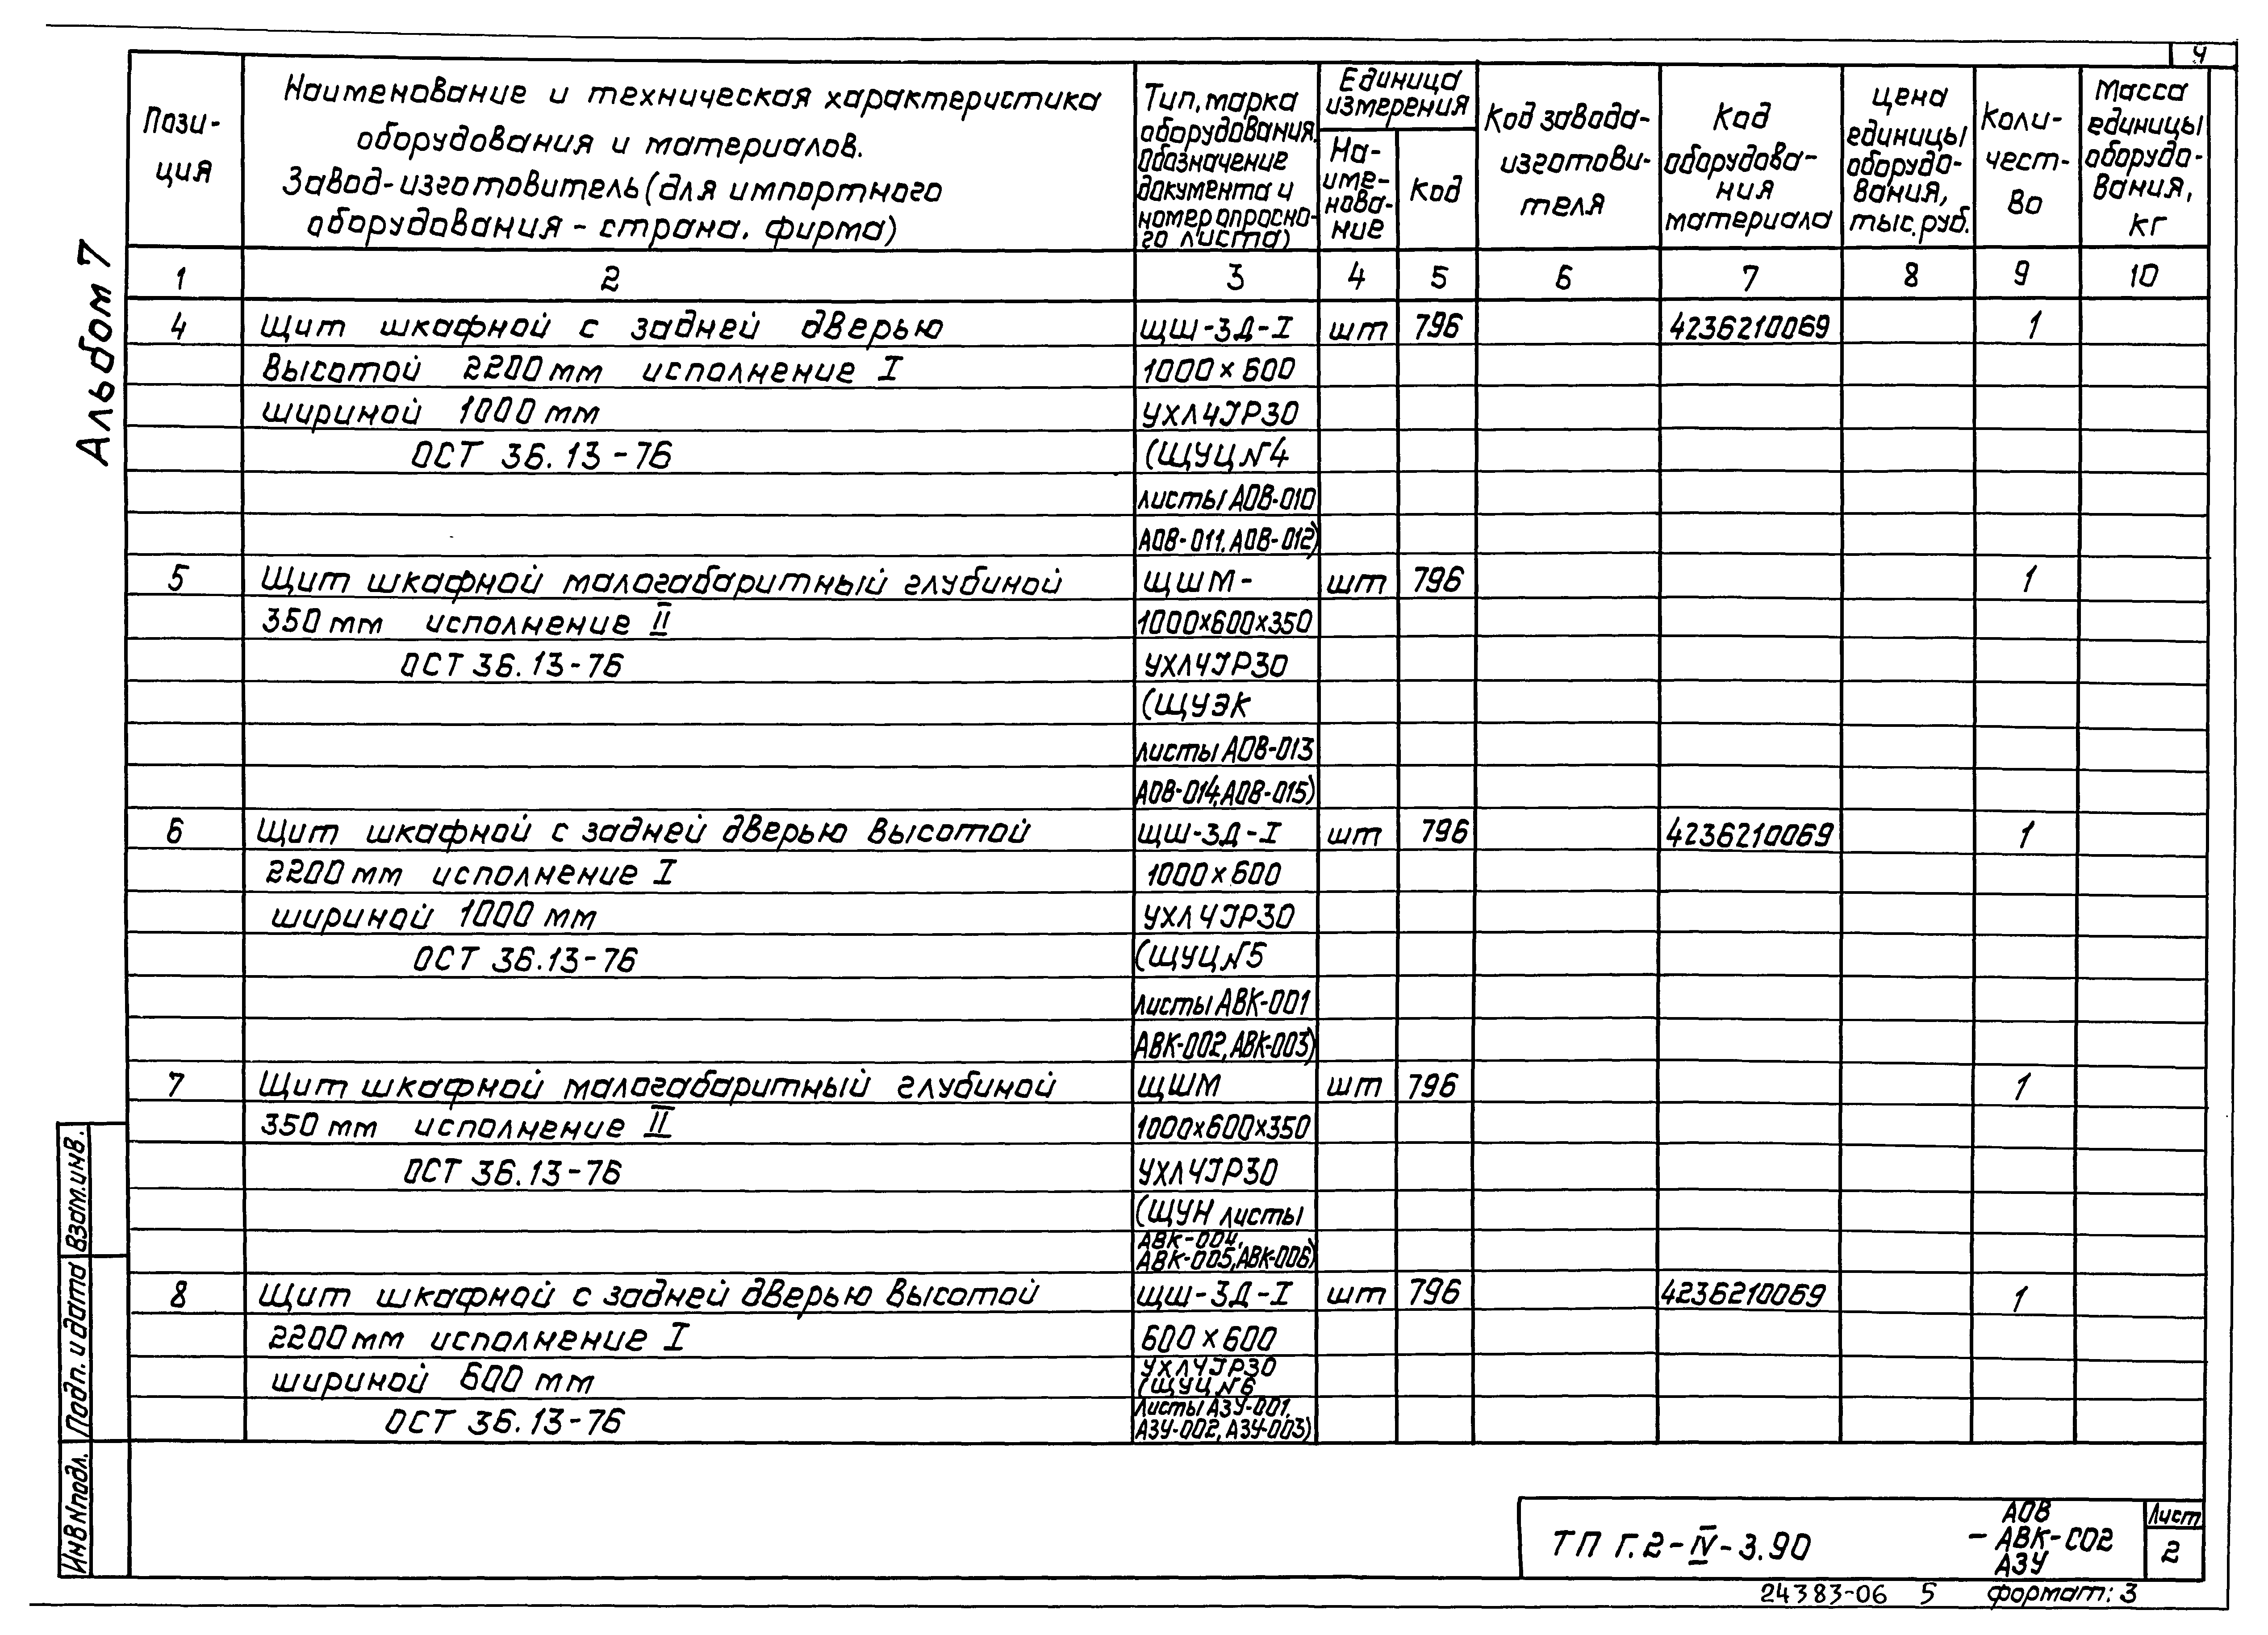 4
Альбом 7
Пози-
ция
Наименование и техническая характеристика
оборудования и материалов.
Завод-изготовитель (для импортного
оборудования - страна, фирма)
Тип, марка
оборудования.
Обозначение
документа и
номер опросно-
го листа)
Единица
измерения
На-
име-
нова-
ние
Код
Код завода-
изготови-
теля
Код
оборудова-
ния
материала
цена
единицы
оборудо-
вания,
тыс. руб.
Коли-
чест-
во
Масса
единицы
оборудо-
вания,
кг
1 2 3 4 5 6 7 8 9 10
4 Щит шкафной с задней дверью ЩШ-ЗД-I шт 796 4236210069 1
высотой 2200 мм исполнение I 1000×600
шириной 1000 мм УХЛ4IP30
ОСТ 36.13-76 (ЩУЦ N4
листы АОВ-010
АОВ-011, АОВ-012)
5 Щит шкафной малогабаритный глубиной ЩШМ- шт 796 1
350 мм исполнение II 1000×600×350
ОСТ 36.13-76 УХЛ4IP30
(ЩУЭК
листы АОВ-013
АОВ-014, АОВ-015)
6 Щит шкафной с задней дверью высотой ЩШ-ЗД-I шт 796 4236210069 1
2200 мм исполнение I 1000×600
шириной 1000 мм УХЛ4IP30
ОСТ 36.13-76 (ЩУЦ N5
листы АВК-001
АВК-002, АВК-003)
7 Щит шкафной малогабаритный глубиной ЩШМ шт 796 1
350 мм исполнение II 1000×600×350
ОСТ 36.13-76 УХЛ4IP30
(ЩУН листы
АВК-004,
АВК-005, АВК-006)
8 Щит шкафной с задней дверью высотой ЩШ-ЗД-I шт 796 4236210069 1
2200 мм исполнение I 600×600
шириной 600 мм УХЛ4IP30
(ЩУЦ N6
ОСТ 36.13-76 Листы АЗУ-001,
АЗУ-002, АЗУ-003)
Взам. инв.
Подп. и дата
Инв N подл.
ТП Г.2-IV-3.90
АОВ
- АВК-СО2
АЗУ
Лист
2
24383-06 5 формат: 3